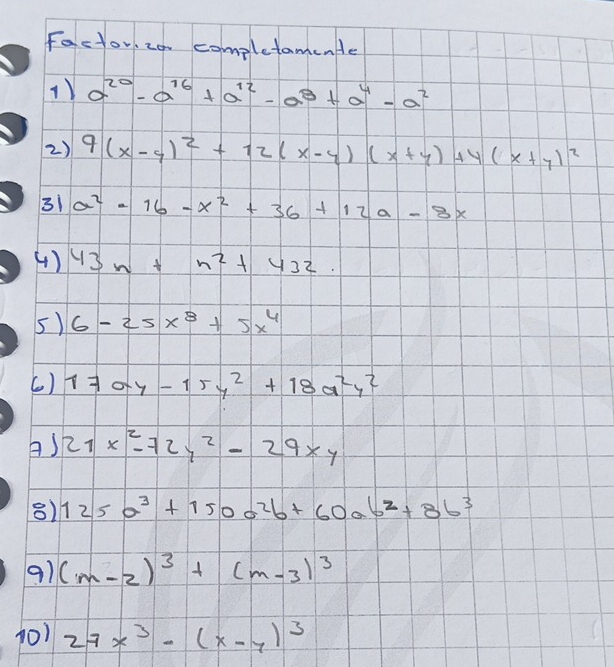 Factorizar completamente
1) a²⁰ - a¹⁶ + a¹² - a⁸ + a⁴ - a²
2) 9(x-y)² + 12(x-y)(x+y) + 4(x+y)²
3) a² - 16 - x² + 36 + 12a - 8x
4) 43n + n² + 432.
5) 6 - 25x⁸ + 5x⁴
6) 17ay - 15y² + 18a²y²
7) 21x² - 72y² - 29xy
8) 125a³ + 150a²b + 60ab² + 8b³
9) (m-2)³ + (m-3)³
10) 27x³ - (x-y)³